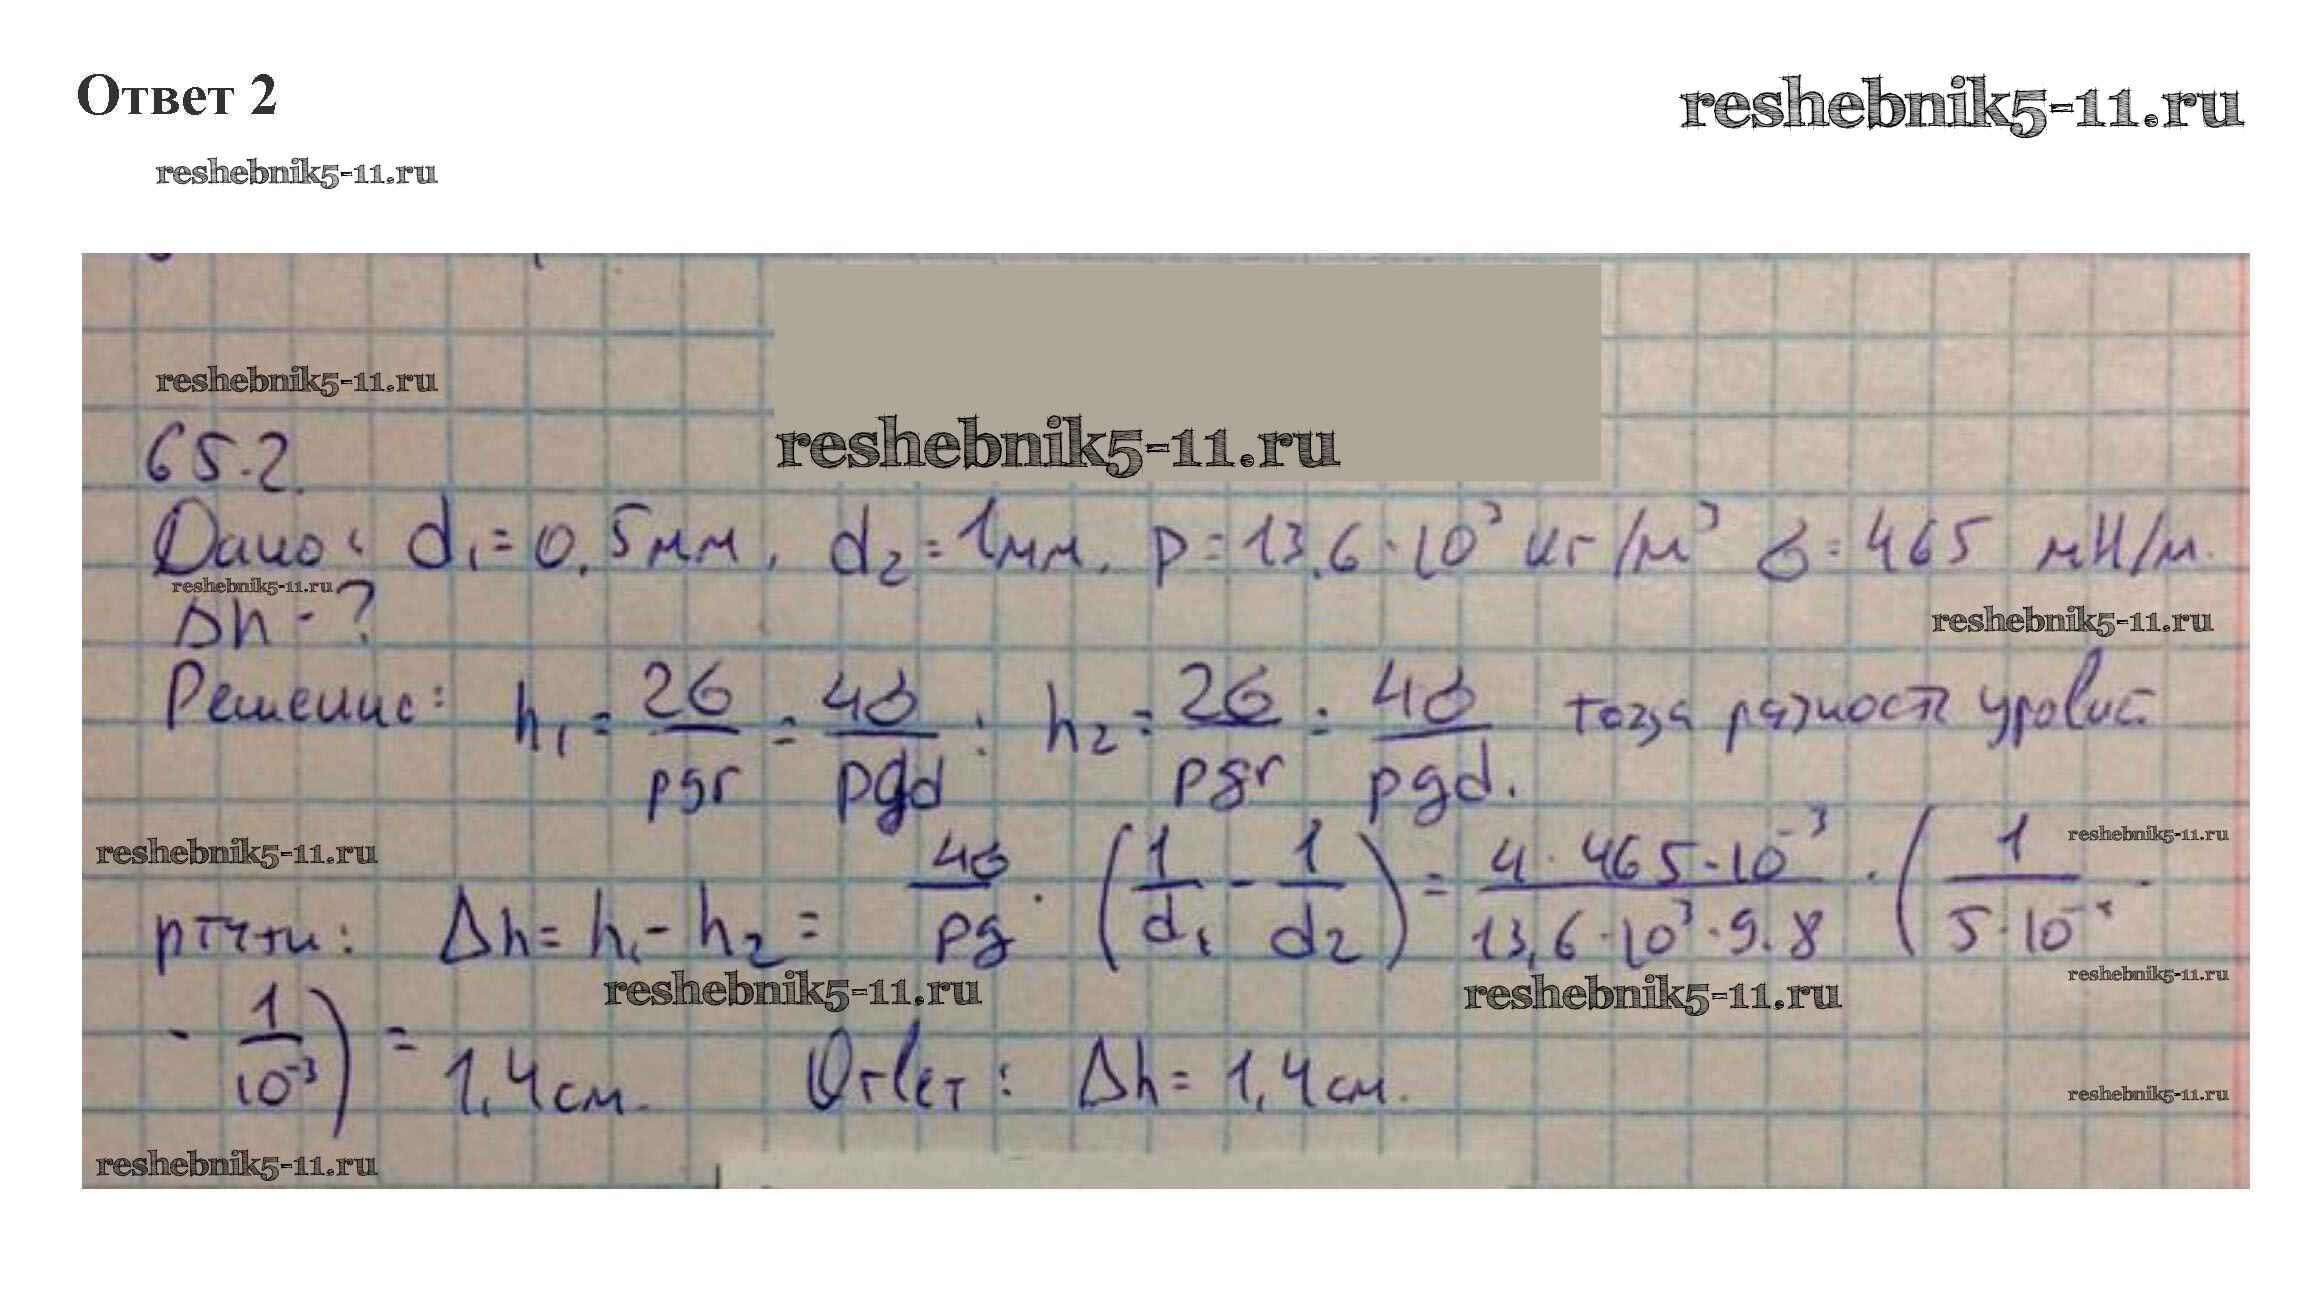 Ответ 2
reshebnik5-11.ru
reshebnik5-11.ru
reshebnik5-11.ru
reshebnik5-11.ru
65.2.
Дано: d₁ = 0,5 мм, d₂ = 1 мм, ρ = 13,6 · 10³ кг/м³ σ = 465 мН/м.
reshebnik5-11.ru
Δh - ?
reshebnik5-11.ru
Решение: h₁ = 2σ/ρgr = 4σ/ρgd ; h₂ = 2σ/ρgr = 4σ/ρgd. тогда разность уровн.
reshebnik5-11.ru
reshebnik5-11.ru
ртути: Δh = h₁ - h₂ = 4σ/ρg · (1/d₁ - 1/d₂) = 4 · 465 · 10⁻³/13,6 · 10³ · 9.8 · (1/5 · 10⁻⁴ -
reshebnik5-11.ru
reshebnik5-11.ru
reshebnik5-11.ru
- 1/10⁻³) = 1,4 см. Ответ: Δh = 1,4 см.
reshebnik5-11.ru
reshebnik5-11.ru